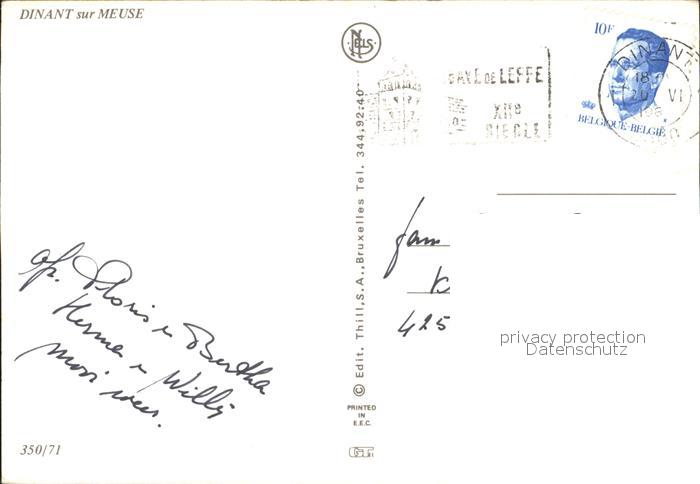 DINANT sur MEUSE
NELS
10F
DINANT
18
20 VI
DE LEFFE
XIIe
SIECLE
BELGIQUE-BELGIË
© Edit. Thill, S.A., Bruxelles Tel. 344.92.40
fam
425
privacy protection
Datenschutz
Floris en Bertha
Herman en Willy
mooi weer.
PRINTED
IN
E.E.C.
350/71